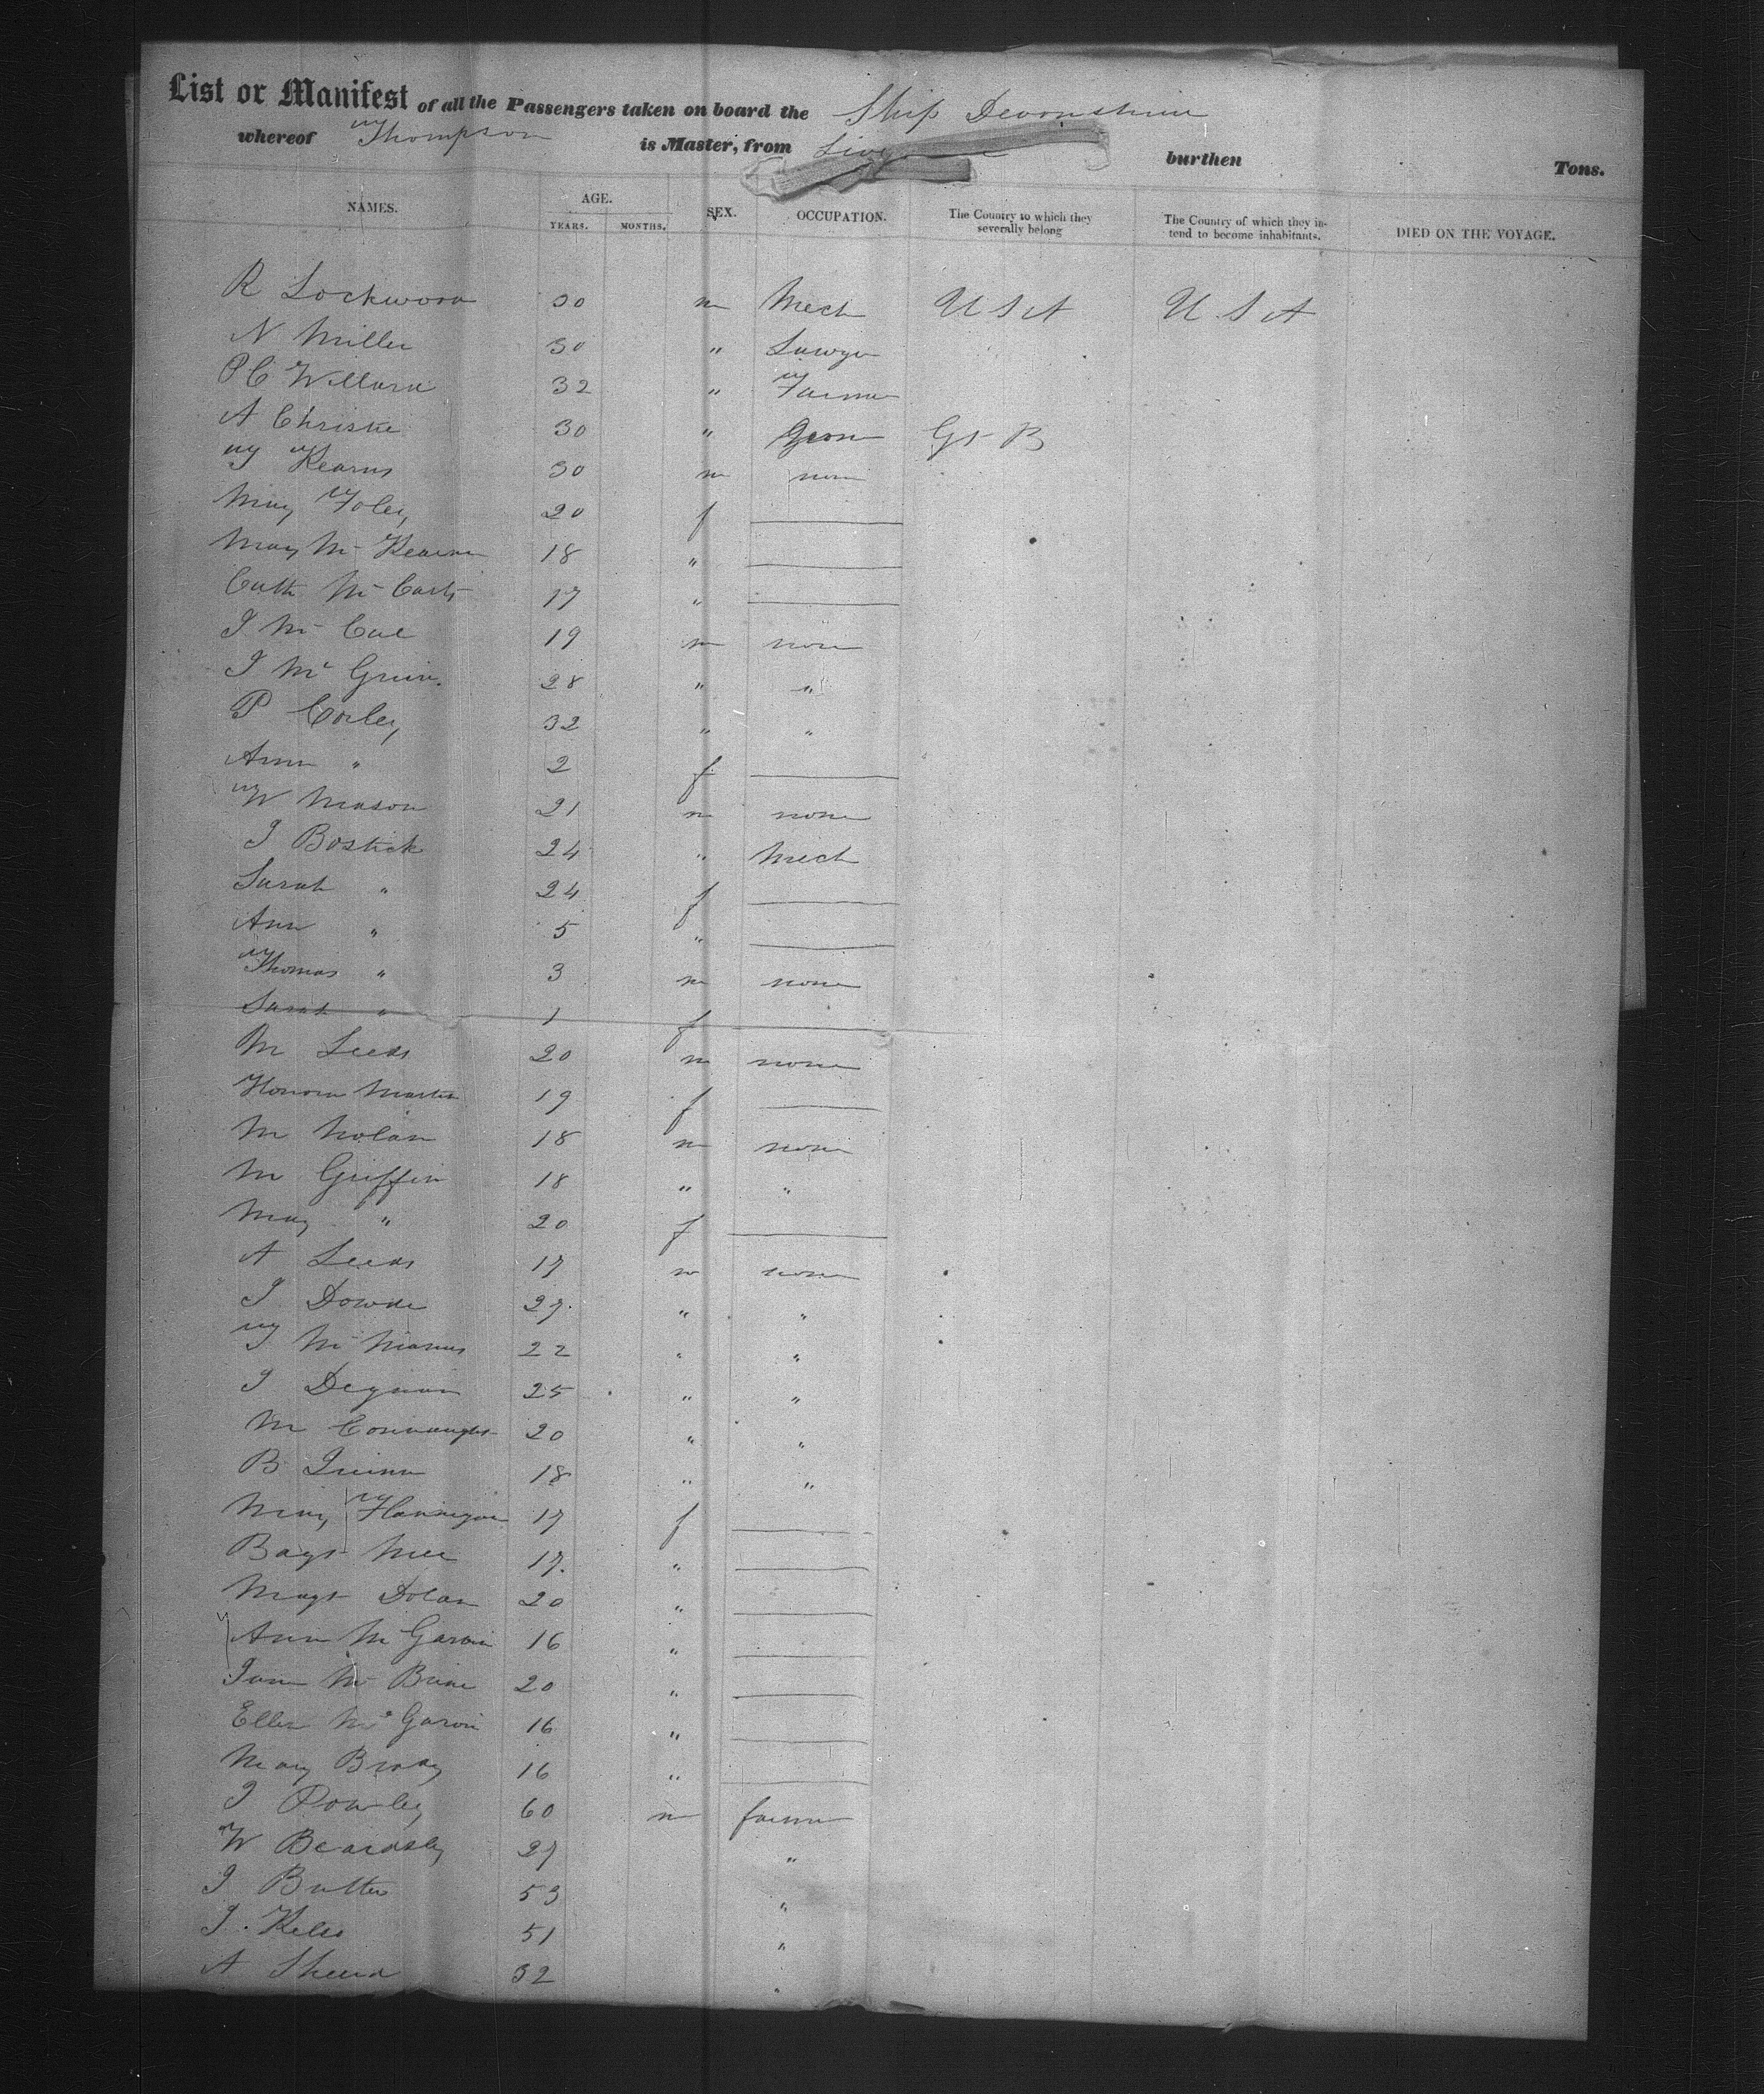 List or Manifest of all the Passengers taken on board the Ship Devonshire
whereof Thompson is Master, from burthen Tons.
NAMES. AGE. YEARS. MONTHS. SEX. OCCUPATION. The Country to which they severally belong The Country of which they intend to become inhabitants. DIED ON THE VOYAGE.
R Lockwood 30 m Mech U S A U S A
N Miller 30 " Lawyer
P C Willard 32 " Farmer
A Christie 30 " Gt B
T Kearns 30 m non
Mary Foley 20 f —
Mary Mc 18 " —
Cath Mc 17 " —
J Mc Cue 19 m none
J Mc 28 " "
P Corley 32 " "
Ann " 2 f —
W Mason 21 m none
J Bostick 24 " Mech
Sarah " 24 f —
Ann " 5 " —
Thomas " 3 m none
Sarah " 1 f —
M Leeds 20 m none
Honora Martin 19 f —
M Nolan 18 m none
M Griffin 18 " "
Mary " 20 f —
A Leeds 17 m none
J 27 " "
T Mc Manus 22 " "
J 25 " "
M 20 " "
B Quinn 18 " "
Mary Flannigan 17 f —
17 " —
Magt Dolan 20 " —
Ann Mc 16 " —
Jane Mc 20 " —
Ellen Mc 16 " —
Mary 16 " —
J 60 m farmer
W Beardsley 27 "
J Butter 53 "
J Kelso 51 "
A 32